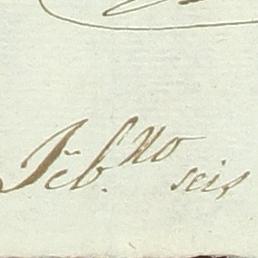 Feb.no seis